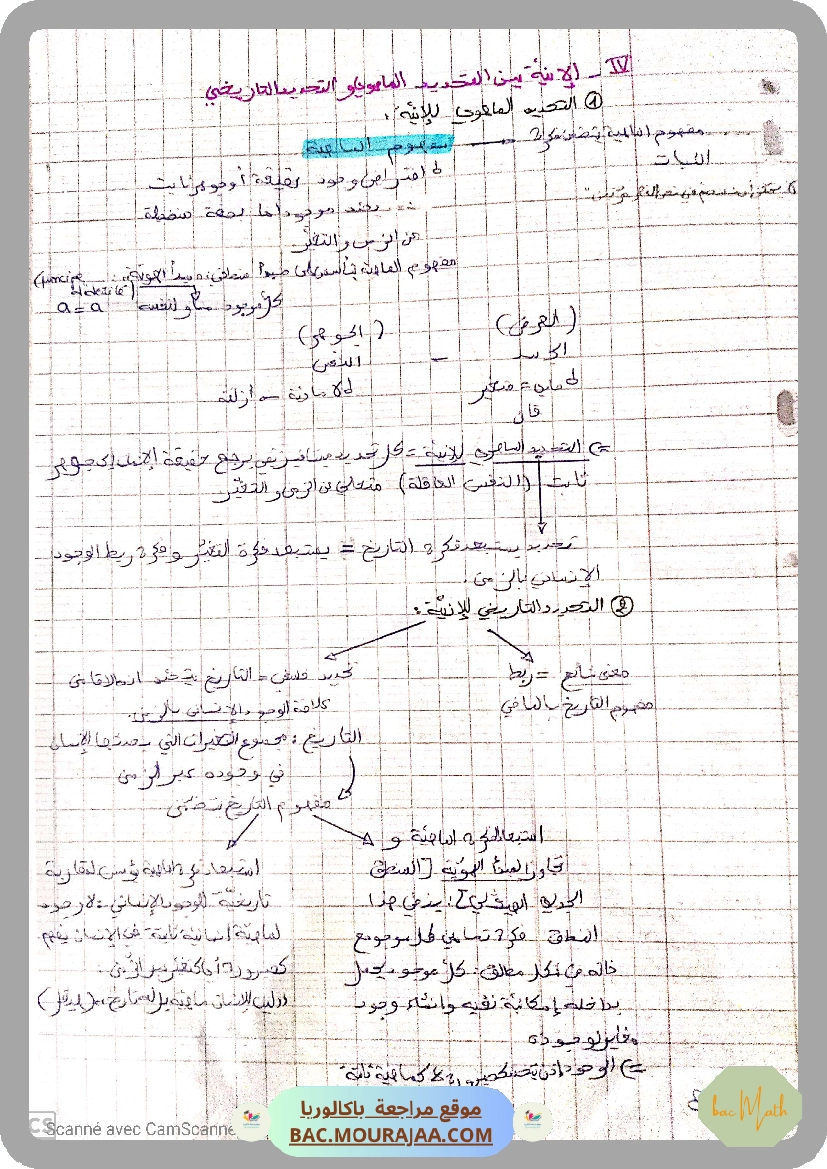 IV - الإنيّة بين التحديد الماهوي و التحديد التاريخي
① التحديد الماهوي للإنيّة :
مفهوم الماهية
مفهوم الماهية يتضمن فكرة
الثبات
افتراض وجود حقيقة أو جوهر ثابت
يحدد موجودا ما بصفة منفصلة
عن الزمن والتغيّر
مفهوم الماهية يتأسس على مبدأ منطقي : مبدأ الهويّة (principe d'identité)
كلّ موجود مساو لنفسه a = a
(العرض) (الجوهر)
الجسد - النفس
مادي = متغير لا مادية أزلية
فان
=> التحديد الماهوي للإنيّة = كل تحديد ميتافيزيقي يرجع حقيقة الإنسان إلى جوهر
ثابت (النفس العاقلة) متعالي عن الزمن و التغيّر
تحديد يستبعد فكرة التاريخ = يستبعد فكرة التغيّر و فكرة ربط الوجود
الإنساني بالزمن .
② التحديد التاريخي للإنيّة :
معنى شائع = ربط
مفهوم التاريخ بالماضي
تحديد فلسفي = التاريخ يتحدد انطلاقا من
علاقة الوجود الإنساني بالزمن .
التاريخ : مجموع التغيرات التي يحدثها الإنسان
في وجوده عبر الزمن
مفهوم التاريخ يتضمن
استبعاد فكرة الماهيّة و
تجاوز لمبدأ الهويّة [المنطق
الجدلي الهيغلي] : ينفي هذا
المنطق فكرة تماهي كل موجود مع
ذاته في شكل مطلق : كلّ موجود يحمل
بداخله إمكانيّة نفيه وانشاء وجود
مغاير لوجوده
=> الوجود إذن يتحدد كصيرورة لا كماهية ثابتة
استبعاد فكرة الماهية يؤسس لمقاربة
تاريخيّة للوجود الإنساني : لا وجود
لماهيّة إنسانية ثابتة في الإنسان يفهم
كصيرورة أي كتغير عبر الزّمن .
"ليس للإنسان ماهية بل له تاريخ"
موقع مراجعة باكالوريا
BAC.MOURAJAA.COM
bac Math
CS Scanné avec CamScanne